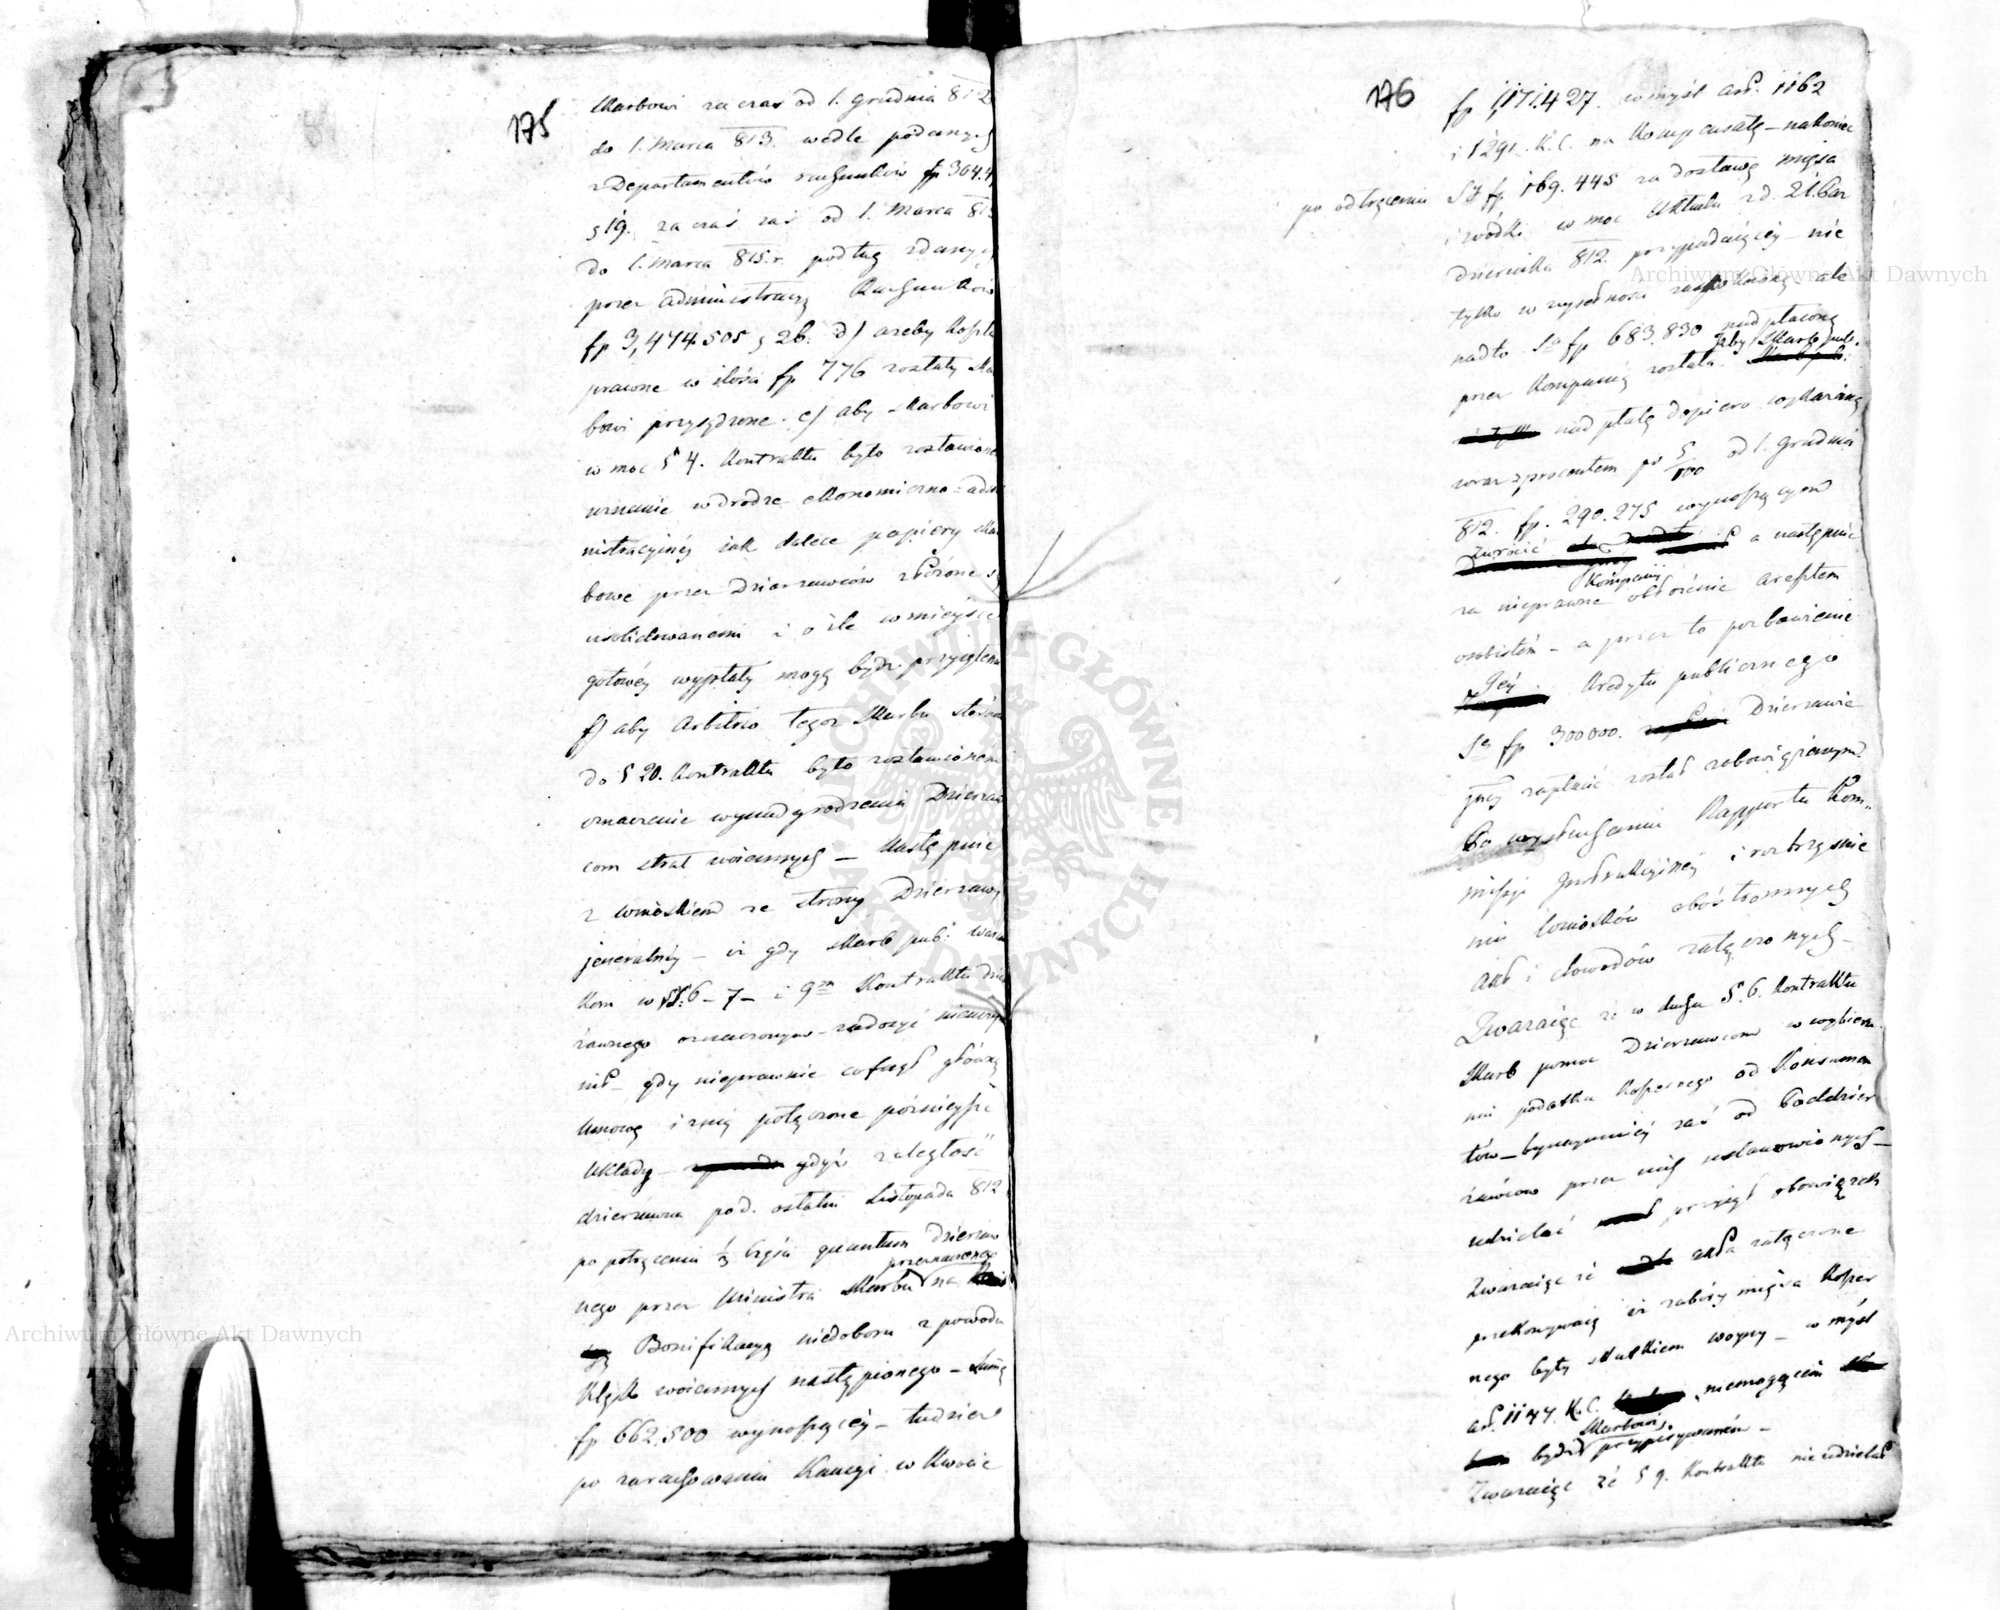 175
Skarbowi za czas od 1. Grudnia 812
do 1. Marca 813. wedle podanych
z Departamentów rachunków fp 364.4
g 19. za czas zaś od 1. Marca 81
do 1. Marca 815.r. podług zdanych
przez administracyą Rachunków
fp 3,474.505 g 26. d) ażeby koszta
prawne w ilości fp 776 zostały Ska
bowi przysądzone. e) aby Skarbowi
w moc § 4. Kontraktu było zostawione
uznanie w drodze ekonomiczno=adm
nistracyiney iak dalece papiery Ska
bowe przez Dzierzawców złożone są
usolidowanemi i o ile w mieysce
gotowey wypłaty mogą bydź przyięte
f) aby Arbitrio tegoż Skarbu stosow
do § 20. Kontraktu było zostawionem
oznaczenie wynadgrodzenia Dzierzaw
com strat woiennych – Następnie
z wnioskiem ze strony Dzierzawy
jeneralnéy – iż gdy Skarb pub: warun
kom w §§: 6 – 7 – i 9m Kontraktu dzie
żawnego oznaczonym – zadosyć nieuczy
nił – gdy nieprawnie cofnął główną
umowę i z nią połączone póznieysze
układy – gdyż zaległość
dzierzawna po d. ostatni Listopada 812
po potrąceniu ⅓ części quantum dzierzaw
przeznaczonego
nego przez Ministra Skarbu na
Bonifikacyą niedoboru z powodu
klęsk woiennych nastąpionego – Summę
fp 662,500 wynoszącéy – tudzież
po zarachowaniu Kaucyi w kwocie
176
fp 1,171.427. w myśl art. 1162
i 1291. K.C. na kompensatę – nakoniec
po odtrąceniu Sy fp 169.445 za dostawę mięsa
i wódki w moc układu z d. 21. Paz
dziernika 812. przypadaiącéy – nie
tylko w zupełności zaspokoioną – ale
nadto Sa fp 683.830 nad płaconą
przez Kompanią została – żeby Skarb pub.
nad płatę dopiero wykazaną
wraz z procentem po 5/100 od 1. Grudnia
812. fp. 290.275 wynoszącym
zwrócić a następnie
Kompanij
za nieprawne obłożenie aresztem
osobistém – a przez to pozbawienie
Jéy kredytu publicznego
Sę fp 300000. Dzierzawie
jnéy zapłacić został zobowiązanym
Po wysłuchaniu Rapportu Kom„
missyi Jnstrukcyinéy i roztrząśnie
niu wniosków obóstronnych
akt i dowodów załączonych –
Zwaraiąc że w duchu §. 6. Kontraktu
Skarb pomoc Dzierzawcom w wybiera
niu podatku koszernego od Konsumen
tów – bynaymniéy zaś od Poddzier
żawców przez nich ustanowionych –
udzielać przyiął obowiązek
Zwaraiąc że akta załączone
przekonywaią iż zabory mięsa koszer
nego były skutkiem woyny – w myśl
art. 1147. K.C. niemogącém
Skarbowi
bydź przypisywaném –
Zwaraiąc że § 9. Kontraktu nieudzielał
Archiwum Główne Akt Dawnych
Archiwum Główne Akt Dawnych
ARCHIWUM GŁÓWNE AKT DAWNYCH